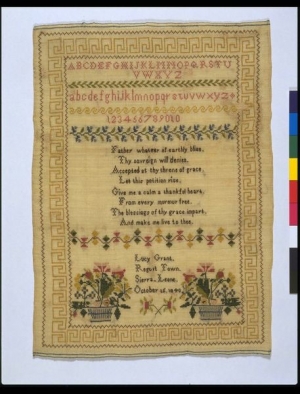 ABCDEFGHIJKLMNOPQRSTU
VWXYZ
abcdefghijklmnopqrstuvwxyz
1234567891010
Father whatever of earthly bliss,
Thy soveraign will denies,
Accepted at thy throne of grace
Let this petition rise,
Give me a calm a thankful heart,
From every murmur free,
The blessings of thy grace impart,
And make me live to thee,
Lucy Grant,
Regent Town,
Sierra Leone,
October